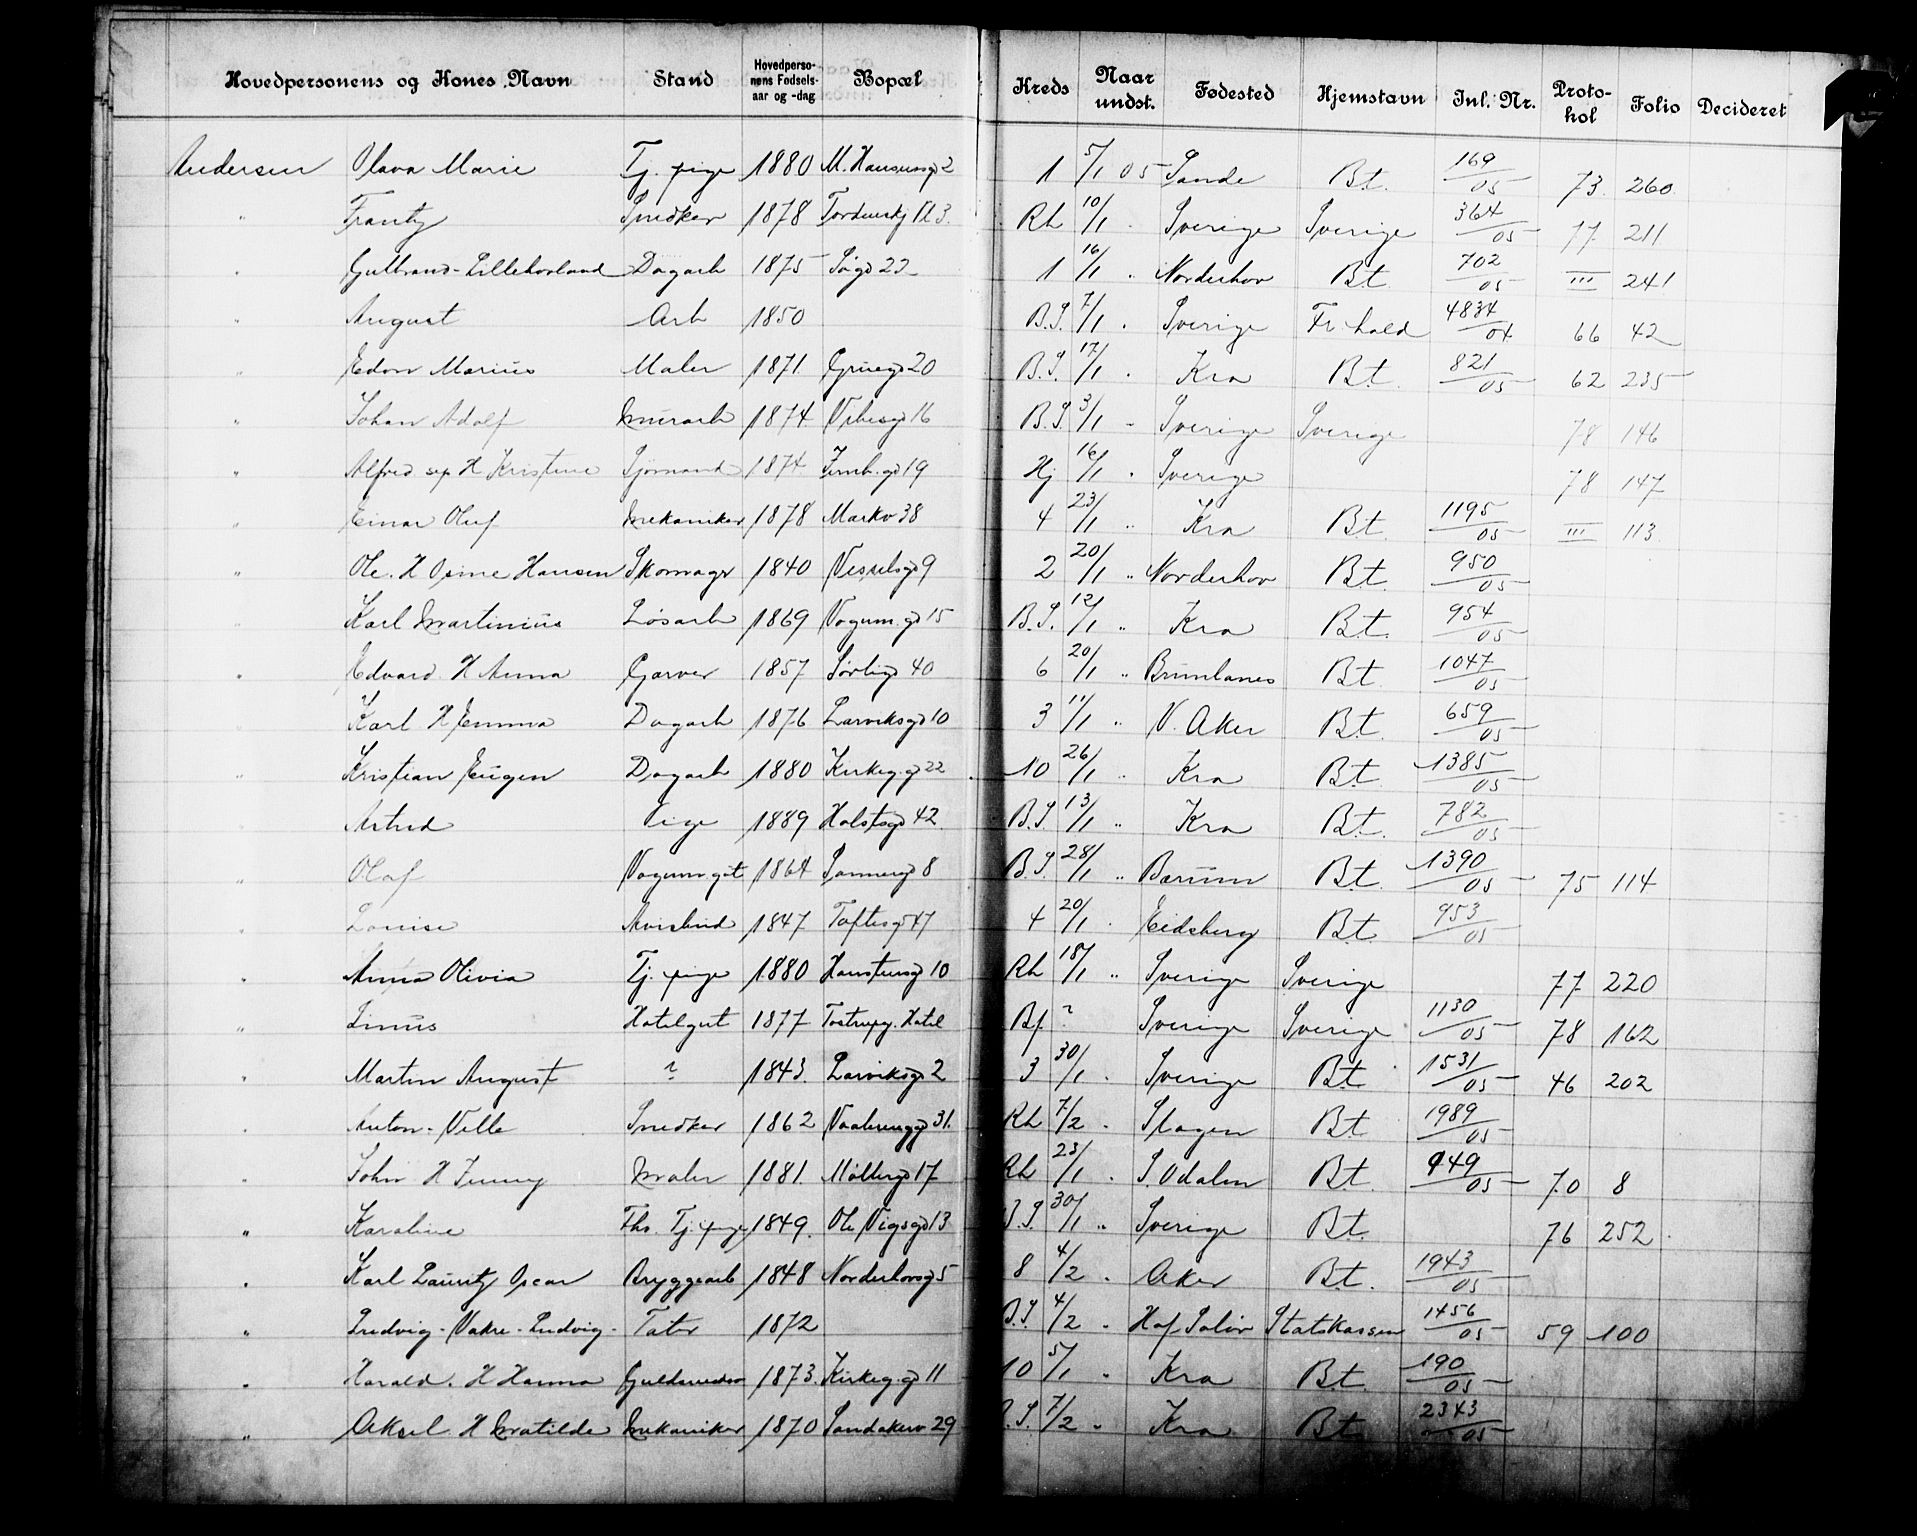 Hovedpersonens og Hones Navn Stand Hovedpersonens Fødselsaar og -dag Bopæl Kreds Naar undst. Fødested Hjemstavn Inl. Nr. Protokol Folio Decideret
Andersen Olava Marie Tj. pige 1880 M. Hansensgd 2 1 5/1 05 Sande Bt. 169/05 73. 260.
" Frantz Snedker 1878 Tordenskj Pl. 3. Rh 10/1 . Sverige Sverige 364/05 77. 211
" Gulbrand - Lillehovland Dagarb 1875 Søgd 22 1 16/1 " Norderhov Bt 702/05 III 241
" August Arb 1850 B.S. 7/1 . Sverige Fr.hald 4834/04 66 42
" Edon Marius Maler 1871. Gruegd 20 B.S. 17/1 . Kra Bt. 821/05 62 235
" Johan Adolf Murarb 1874 Vibesgd 16 B.S. 3/1 - Sverige Sverige 78 146
" Alfred sep H Kristine Sjømand 1874 Jernb.gd 19 Hj 16/1 . Sverige 78 147
" Einar Oluf Mekaniker 1878 Markv 38 4 23/1 " Kra Bt. 1195/05 III 113.
" Ole. H Osine Hansen Skomager 1840 Vesselsgd 9 2 20/1 " Norderhov Bt. 950/05
" Karl Martinius Løsarb 1869 Vognm.gd 15 B.S. 12/1 " Kra Bt. 954/05
" Edvard. H Anna Garver 1857 Sørligd 40 6 20/1 " Brunlanes Bt. 1047/05
" Karl H Emma Dagarb 1876 Larviksgd 10 3 11/1 " V. Aker Bt. 659/05
" Kristian Eugen Dagarb 1880 Kirkeg.gd 22 10 26/1 " Kra Bt. 1385/05
" Astrid Pige 1889 Holstsgd 42. B.S. 13/1 " Kra Bt. 782/05
" Olaf Vognm.gut 1864 Sannergd 8 B.S. 28/1 " Bærum Bt. 1390/05 75 114
" Lovise Avisbud 1847 Toftesgd 47 4 20/1 . Eidsberg Bt. 953/05
" Anna Olivia Tj. pige 1880 Hausmsgd 10 Rh 18/1 " Sverige Sverige 77. 220
" Linus Hotelgut 1877 Tostrupg. Hotel Bf ? Sverige Sverige 1130/05 78 162
" Martin August ? 1843. Larviksgd 2 3 30/1 . Sverige Bt 1531/05 46 202
" Anton - Velle Snedker 1862 Vaalerenggd 31. Rh 7/2 . Slagen Bt 1989/05
" John H Jenny Maler 1881. Møllergd 17 Rh 23/1 . S. Odalen Bt. 949/05 70 8
" Karoline Fhv. Tj. pige 1849. Ole Vigsgd 13 B.S. 30/1 " Sverige Bt. 76 252.
" Karl Lauritz Oscar Bryggearb 1848 Norderhovgd 5 8 4/2 . Aker Bt. 1943/05
" Ludvig - Vakre - Ludvig - Tater 1872 B.S. 4/2 . Hof Solør Statskassen 1456/05 59 100
" Harald. H Hanna Guldsmedsv 1873. Kirkeg.gd 11 10 5/1 . Kra Bt. 190/05
" Aksel. H Matilde Mekaniker 1870 Sandakerv 29 B.S. 7/2 " Kra Bt 2343/05